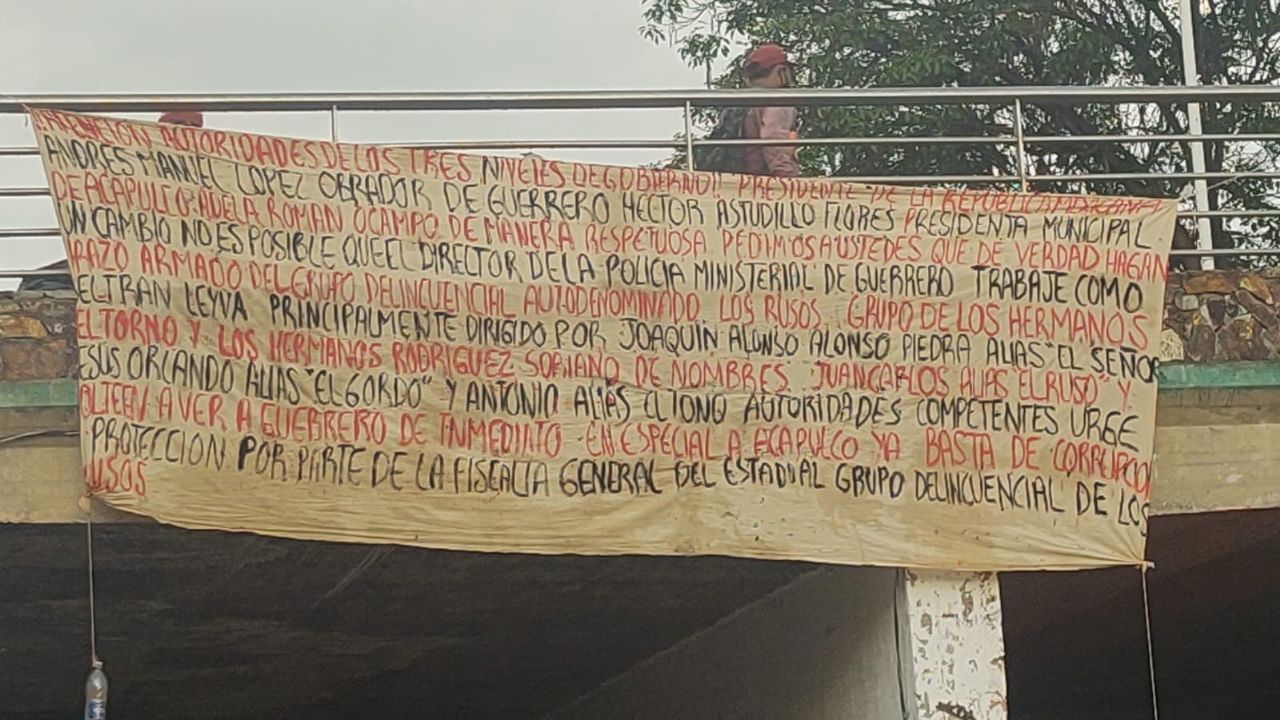 ATENCION AUTORIDADES DE LOS TRES NIVELES DE GOBIERNO PRESIDENTE DE LA REPUBLICA MEXICANA
ANDRES MANUEL LOPEZ OBRADOR DE GUERRERO HECTOR ASTUDILLO FLORES PRESIDENTA MUNICIPAL
DE ACAPULCO ADELA ROMAN OCAMPO DE MANERA RESPETUOSA PEDIMOS A USTEDES QUE DE VERDAD HAGAN
UN CAMBIO NO ES POSIBLE QUE EL DIRECTOR DE LA POLICIA MINISTERIAL DE GUERRERO TRABAJE COMO
RAZO ARMADO DEL GRUPO DELINCUENCIAL AUTODENOMINADO LOS RUSOS GRUPO DE LOS HERMANOS
ELTRAN LEYVA PRINCIPALMENTE DIRIGIDO POR JOAQUIN ALONSO ALONSO PIEDRA ALIAS "EL SEÑOR
EL TORNO Y LOS HERMANOS RODRIGUEZ SORIANO DE NOMBRES JUAN CARLOS ALIAS EL RUSO" Y
ESUS ORLANDO ALIAS "EL GORDO" Y ANTONIO ALIAS EL TONO AUTORIDADES COMPETENTES URGE
OLTEEN A VER A GUERRERO DE INMEDIATO EN ESPECIAL A ACAPULCO YA BASTA DE CORRUPCION
PROTECCION POR PARTE DE LA FISCALIA GENERAL DEL ESTADO AL GRUPO DELINCUENCIAL DE LOS
RUSOS